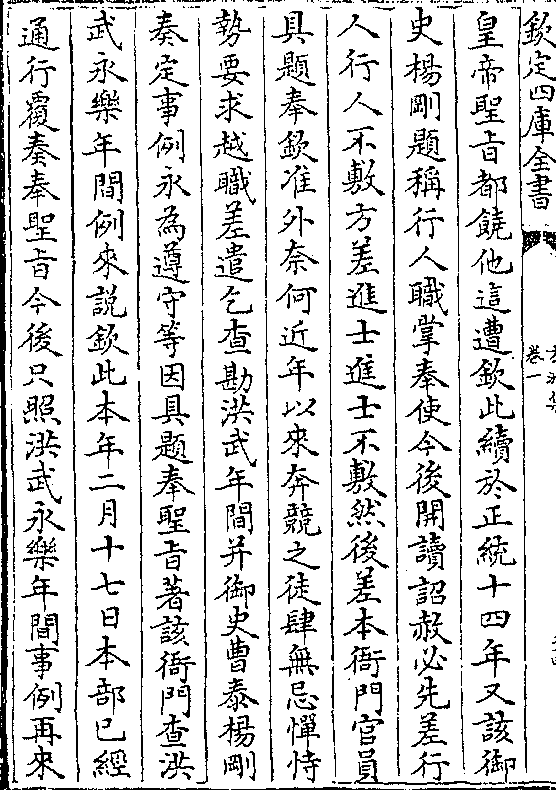 欽定四庫全書
卷一
皇帝聖旨都饒他這遭欽此續於正統十四年又該御
史楊剛題稱行人職掌奉使今後開讀詔赦必先差行
人行人不敷方差進士進士不敷然後差本衙門官員
具題奉欽准外奈何近年以來奔競之徒肆無忌憚恃
勢要求越職差遣乞查勘洪武年間并御史曹泰楊剛
奏定事例永為遵守等因具題奉聖旨著該衙門查洪
武永樂年間例來說欽此本年二月十七日本部已經
通行覆奏奉聖旨今後只照洪武永樂年間事例再來